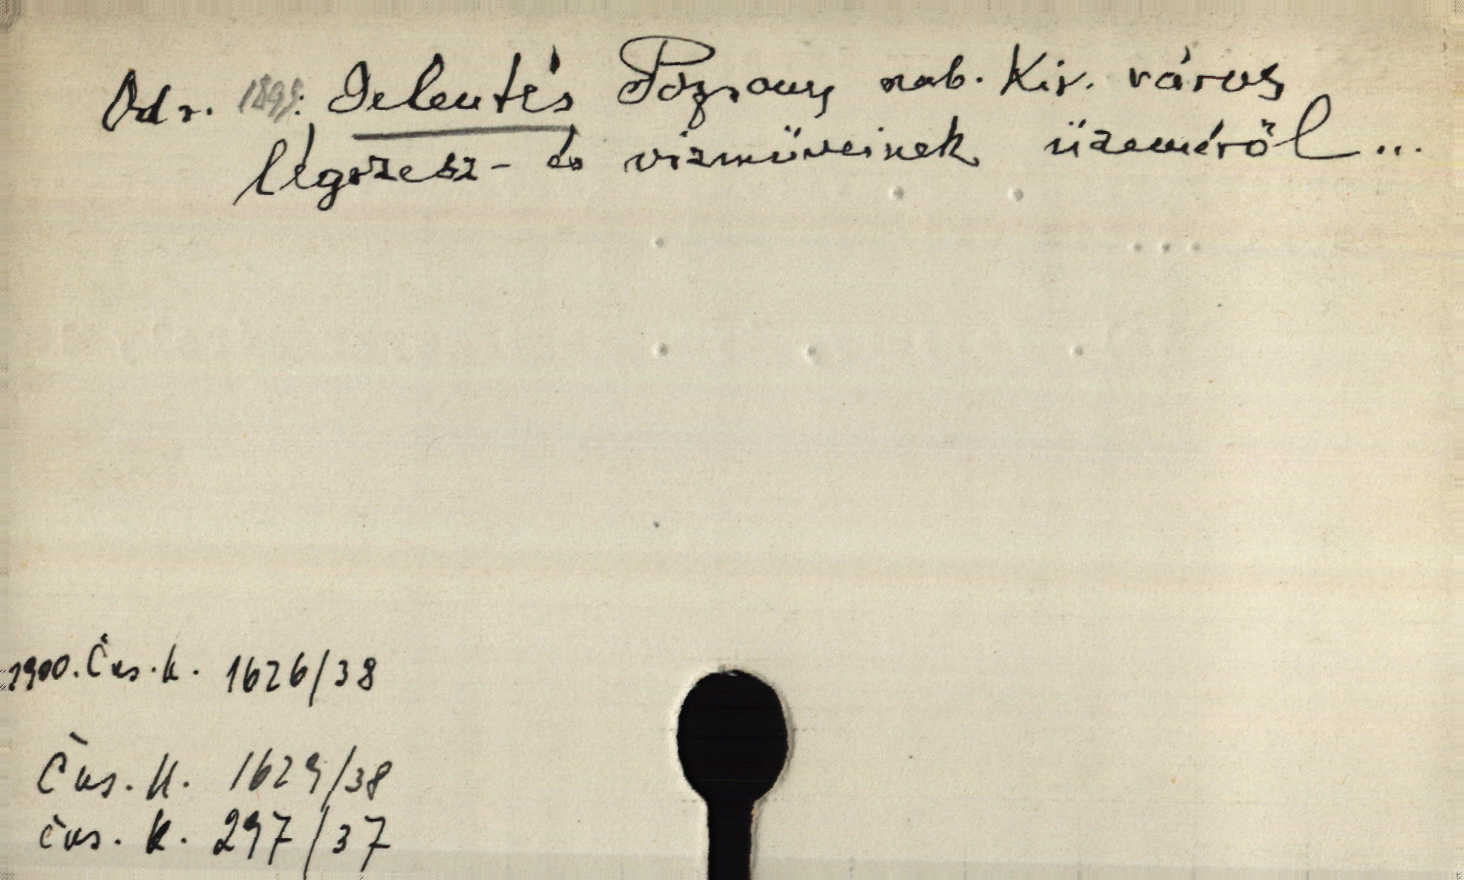 Od r. 1899: Jelentés Pozsony szab. Kir. város
légszesz- és vizmüveinek üzeméről...
1900. Čas. k. 1626/38
Čas. K. 1629/38
čas. k. 297/37